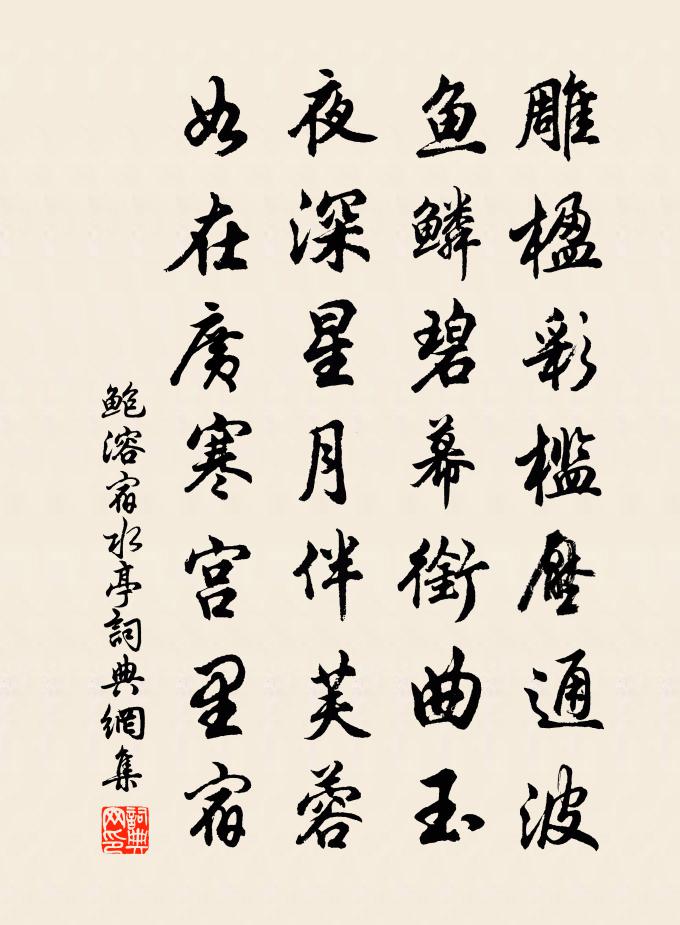 雕楹彩槛壓通波
鱼鳞碧幕銜曲玉
夜深星月伴芙蓉
如在廣寒宫里宿
鲍溶宿水亭詞典網集
詞典網印